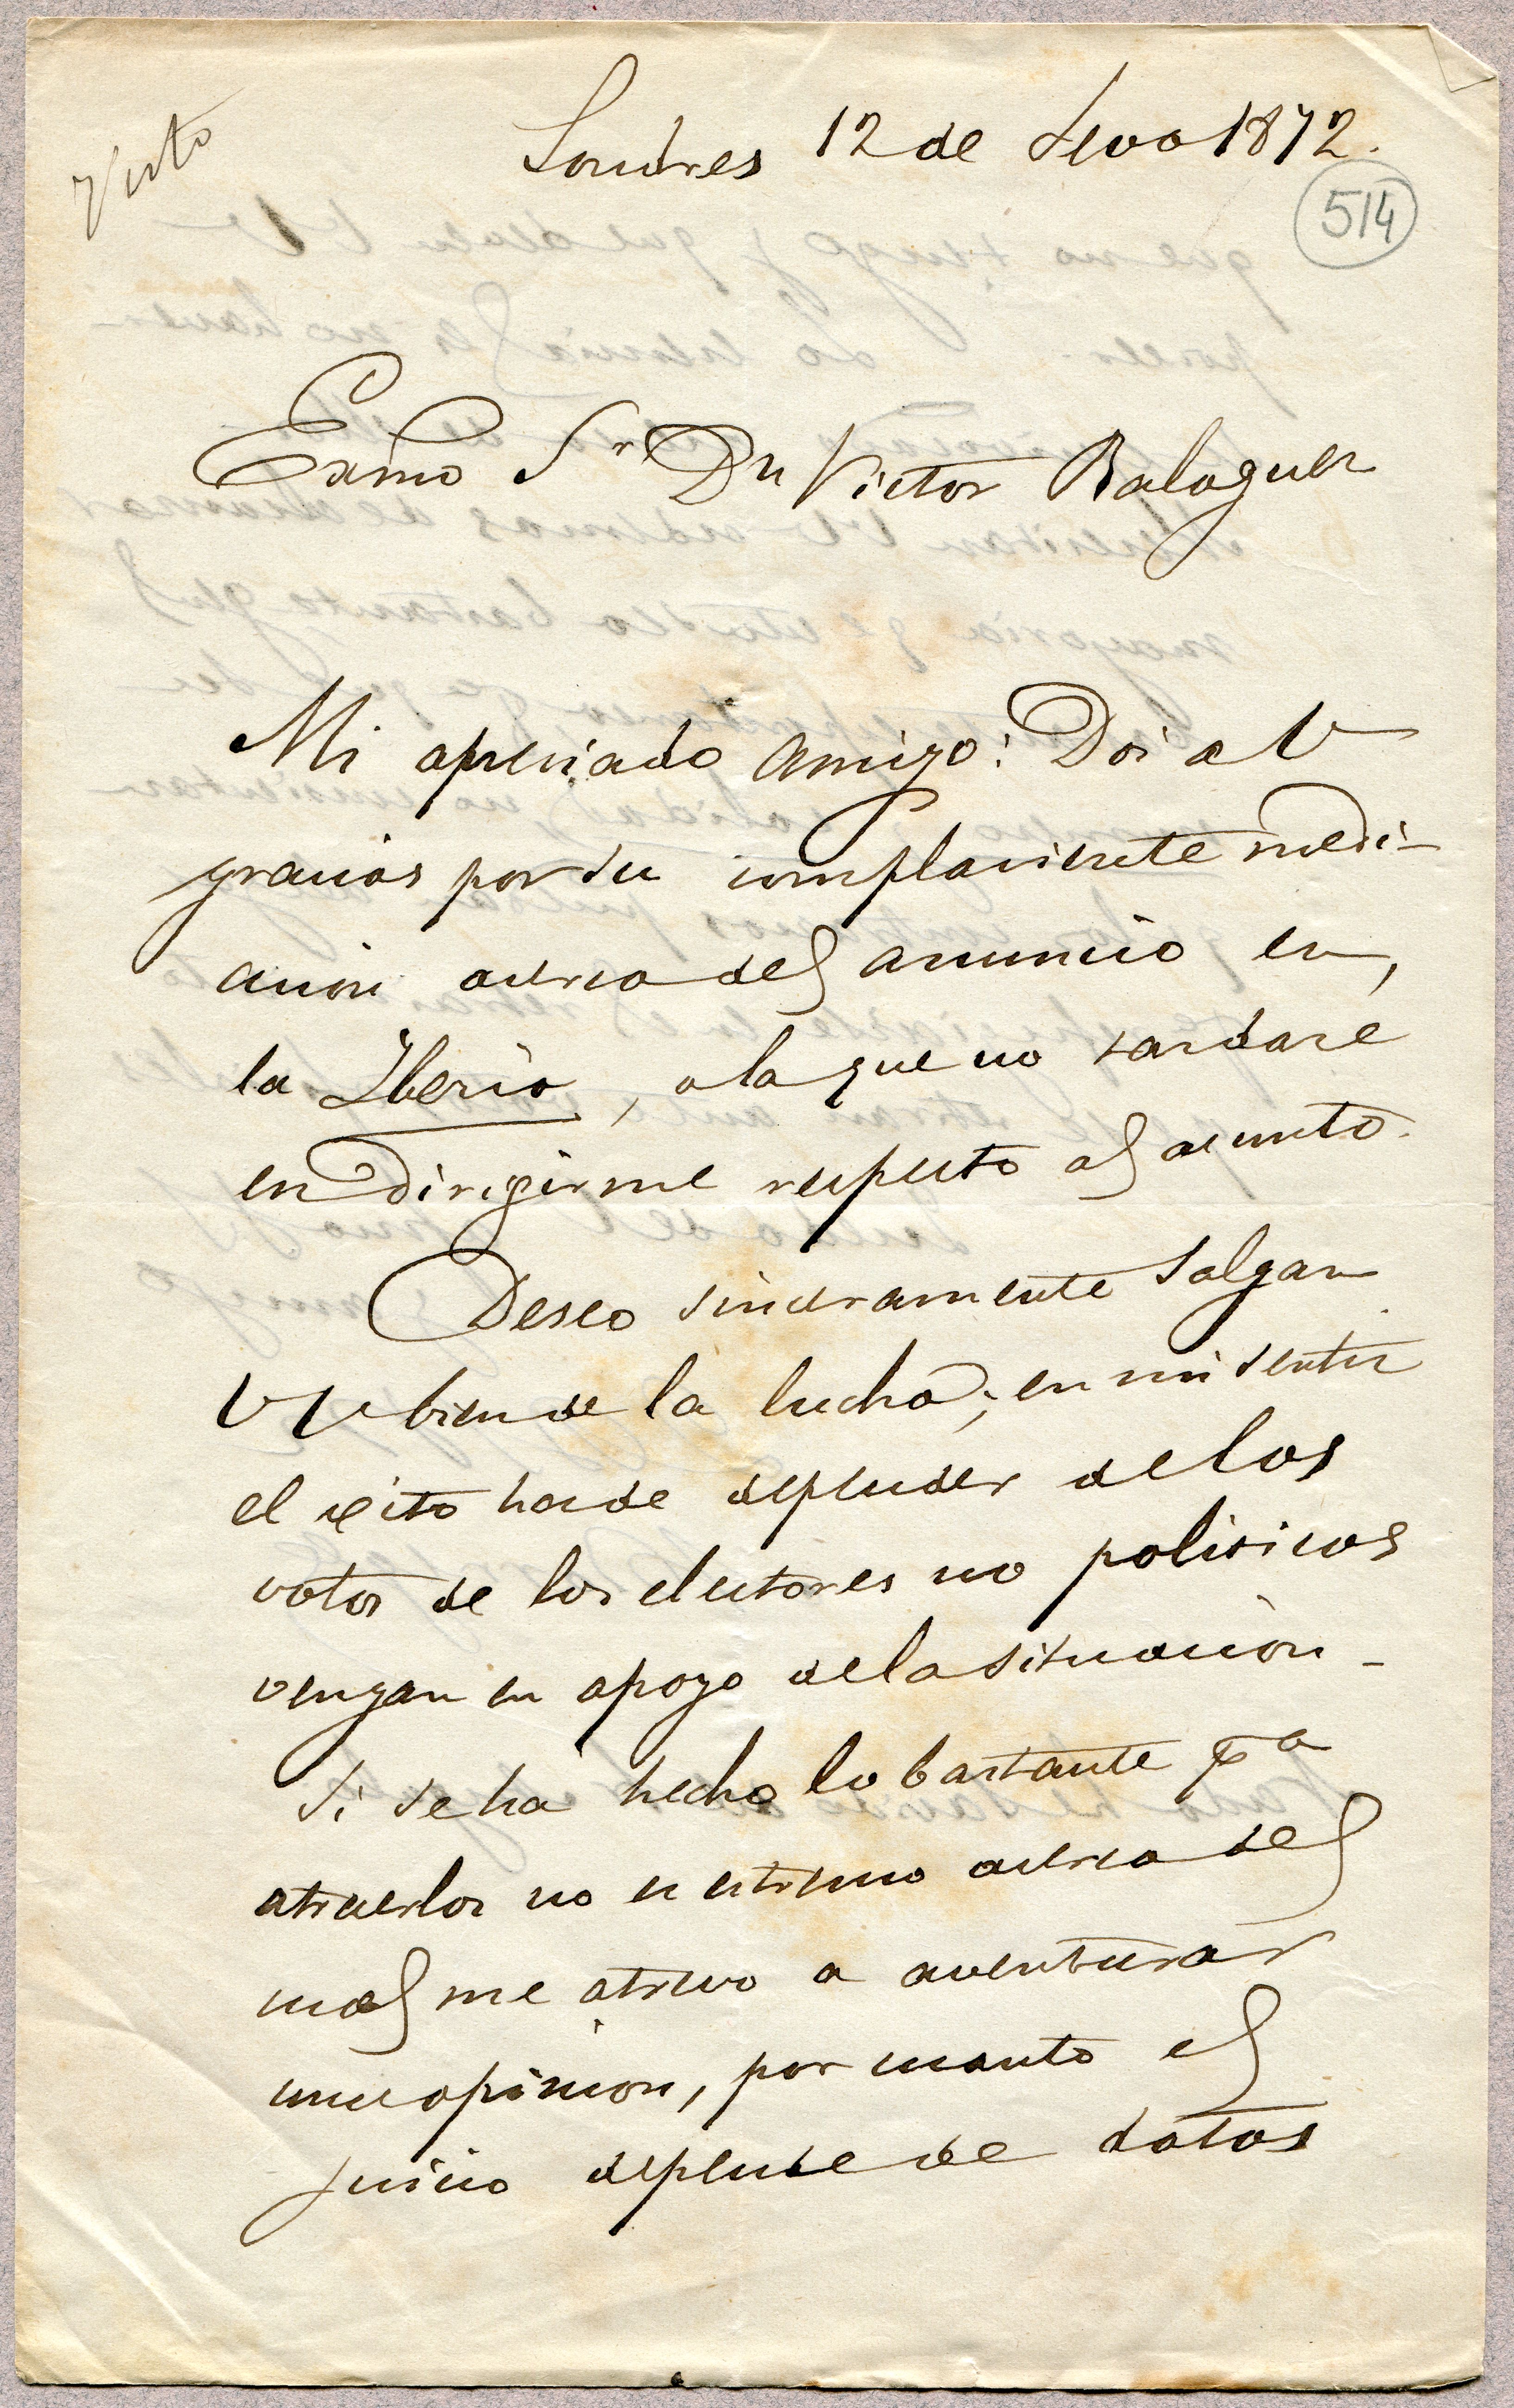 Visto
Londres 12 de 1872.
514
Exmo Sr Dn Victor Balaguer
Mi apreciado amigo: Doi a V
gracias por su complaciente medi-
acion acerca del anuncio en,
la Iberia, a la que no tardaré
en dirigirme respecto al asunto.
Deseo sinceramente salgan
VV bien de la lucha; en mi sentir
el exito ha de depender de los
votos de los electores no politicos
vengan en apoyo de la situación -
Si se ha hecho lo bastante pa
atraerlos no es estremo acerca del
cual me atrevo a aventurar
una opinion, por cuanto el
juicio depende de datos